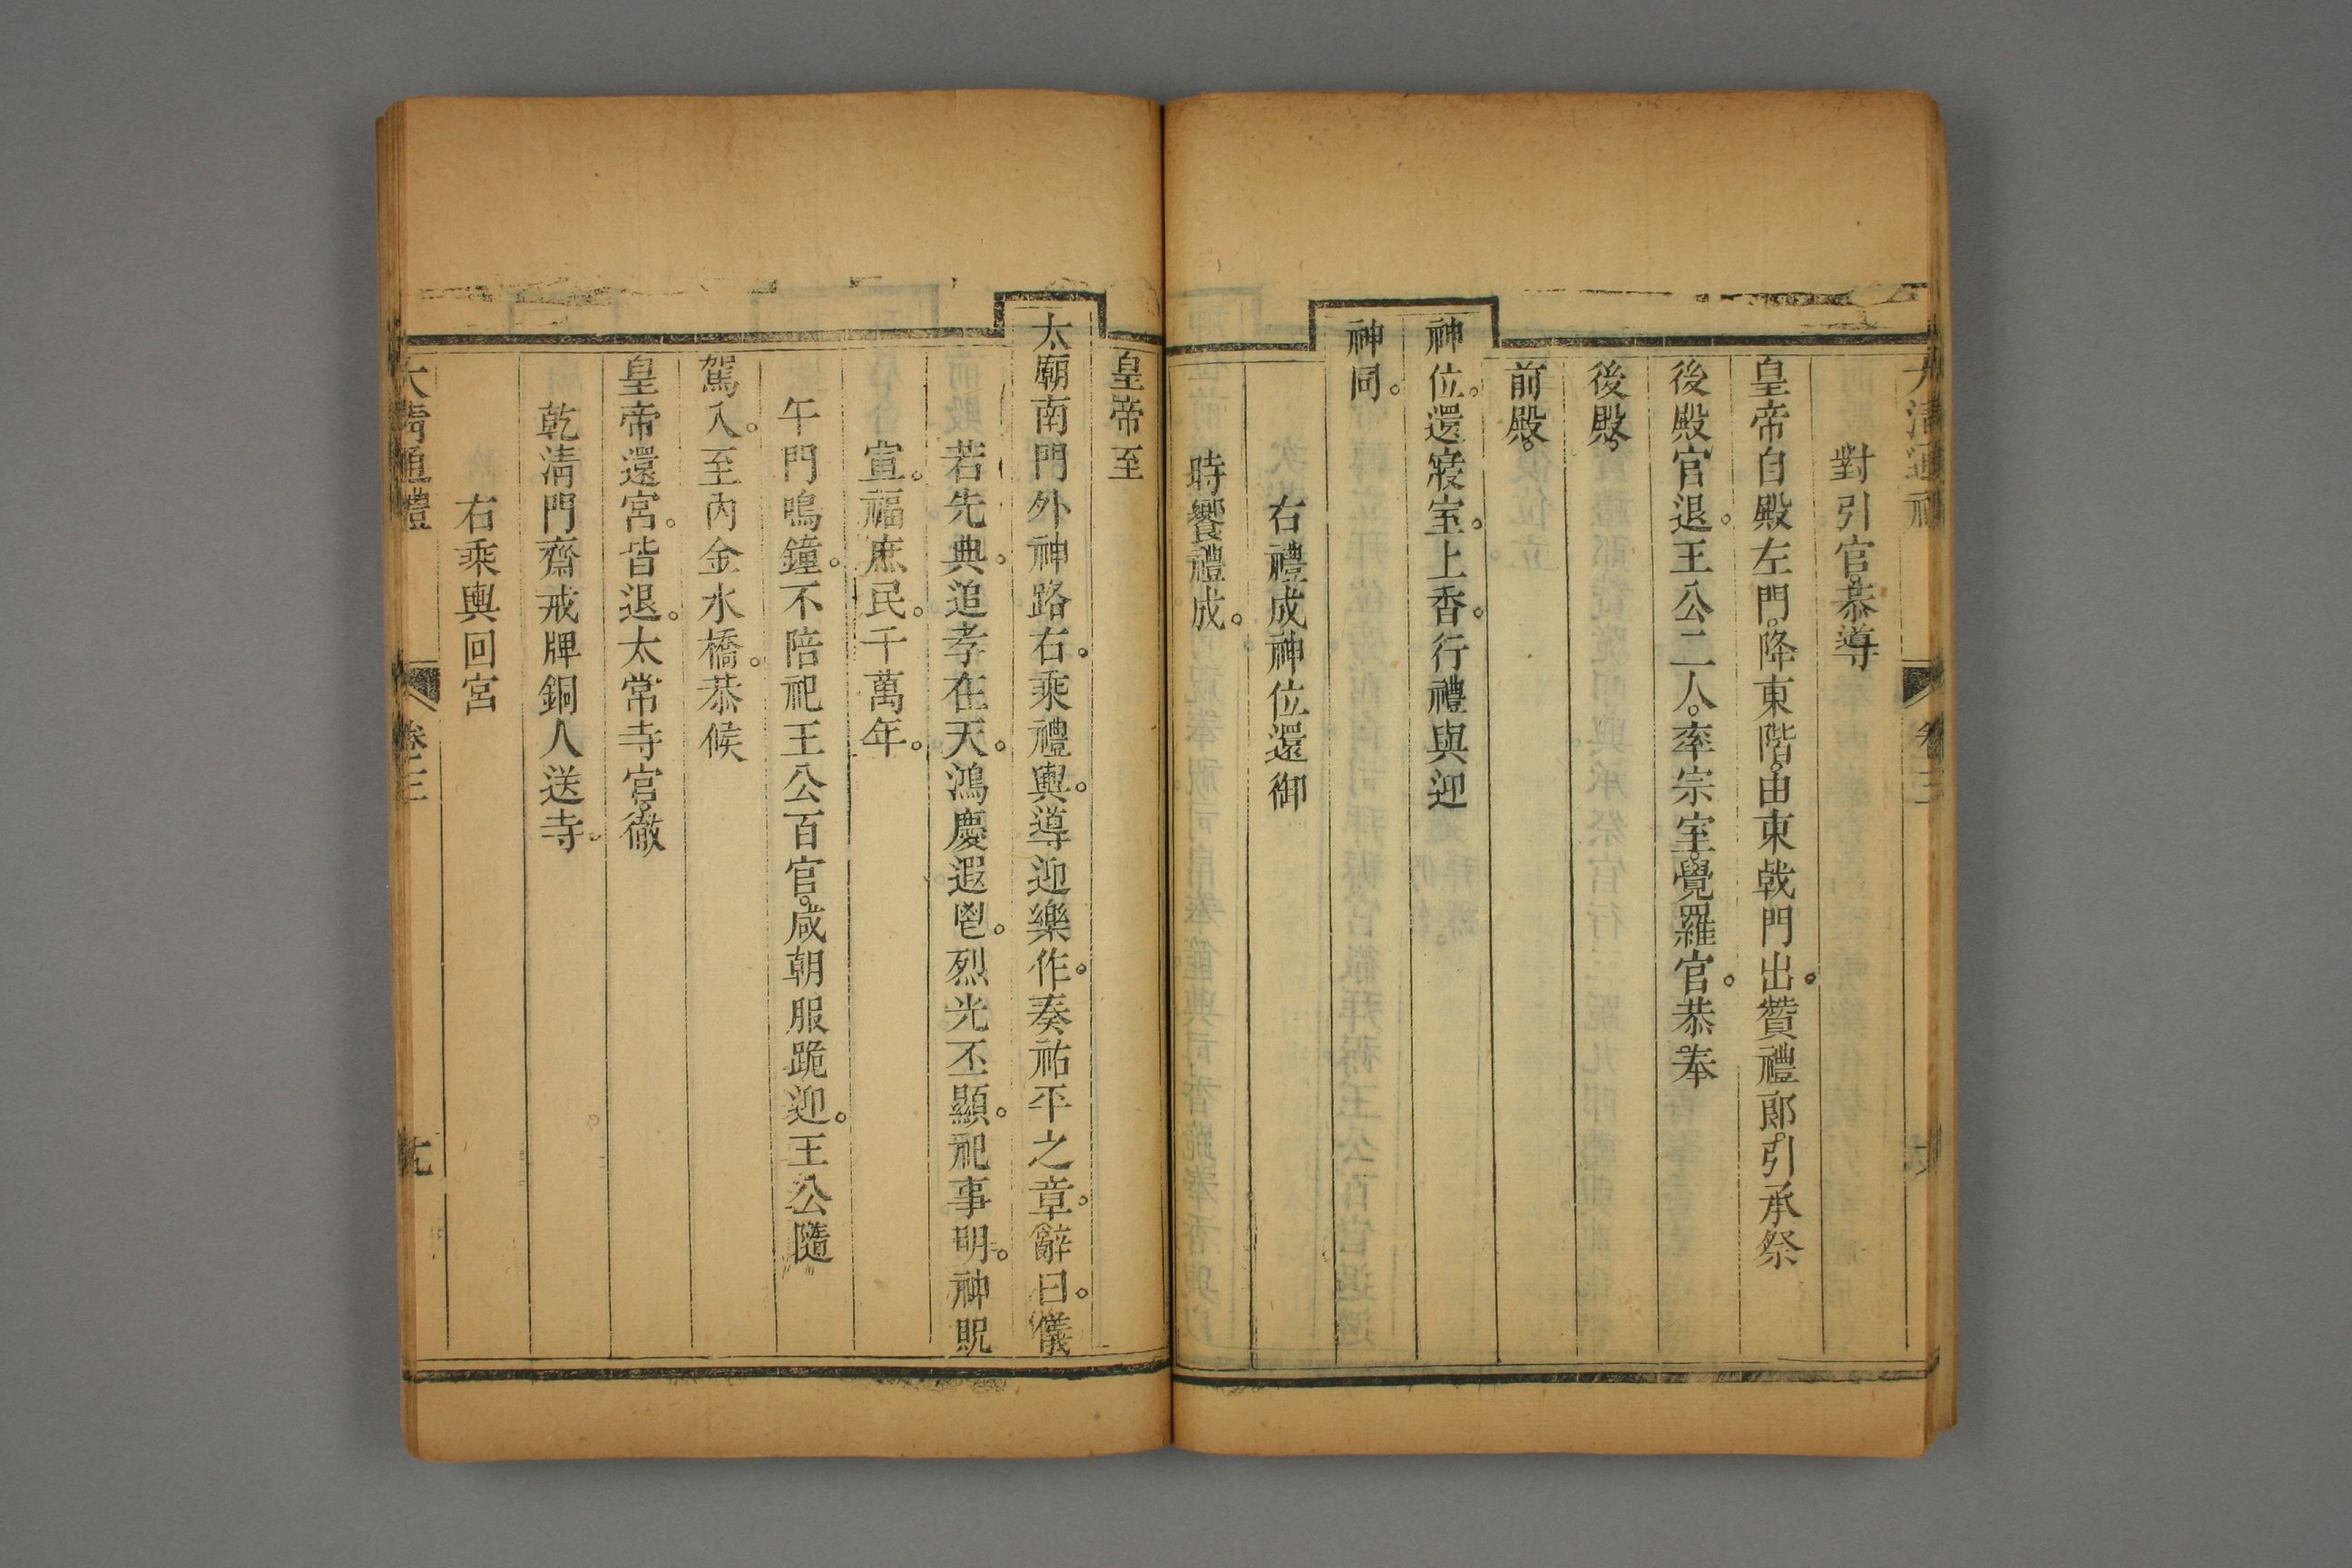 大清通禮 卷三
對引官。恭導
皇帝自殿左門。降東階。由東戟門出。贊禮郎。引承祭
後殿官退。王公二人。率宗室。覺羅官。恭奉
後殿。
前殿。
神位。還寢室。上香。行禮與迎
神同。
右禮成神位還御
時饗禮成。
皇帝至
太廟南門外神路右。乘禮輿。導迎樂作。奏祐平之章。辭曰。儀
若先典。追孝在天。鴻慶遐鬯。烈光丕顯。祀事明。神貺
宣。福庶民。千萬年。
午門鳴鐘。不陪祀王公百官。咸朝服跪迎。王公隨
駕入。至內金水橋。恭候
皇帝還宮。皆退。太常寺官。徹
乾清門齋戒牌銅人送寺。
右乘輿回宮
大清通禮 卷三